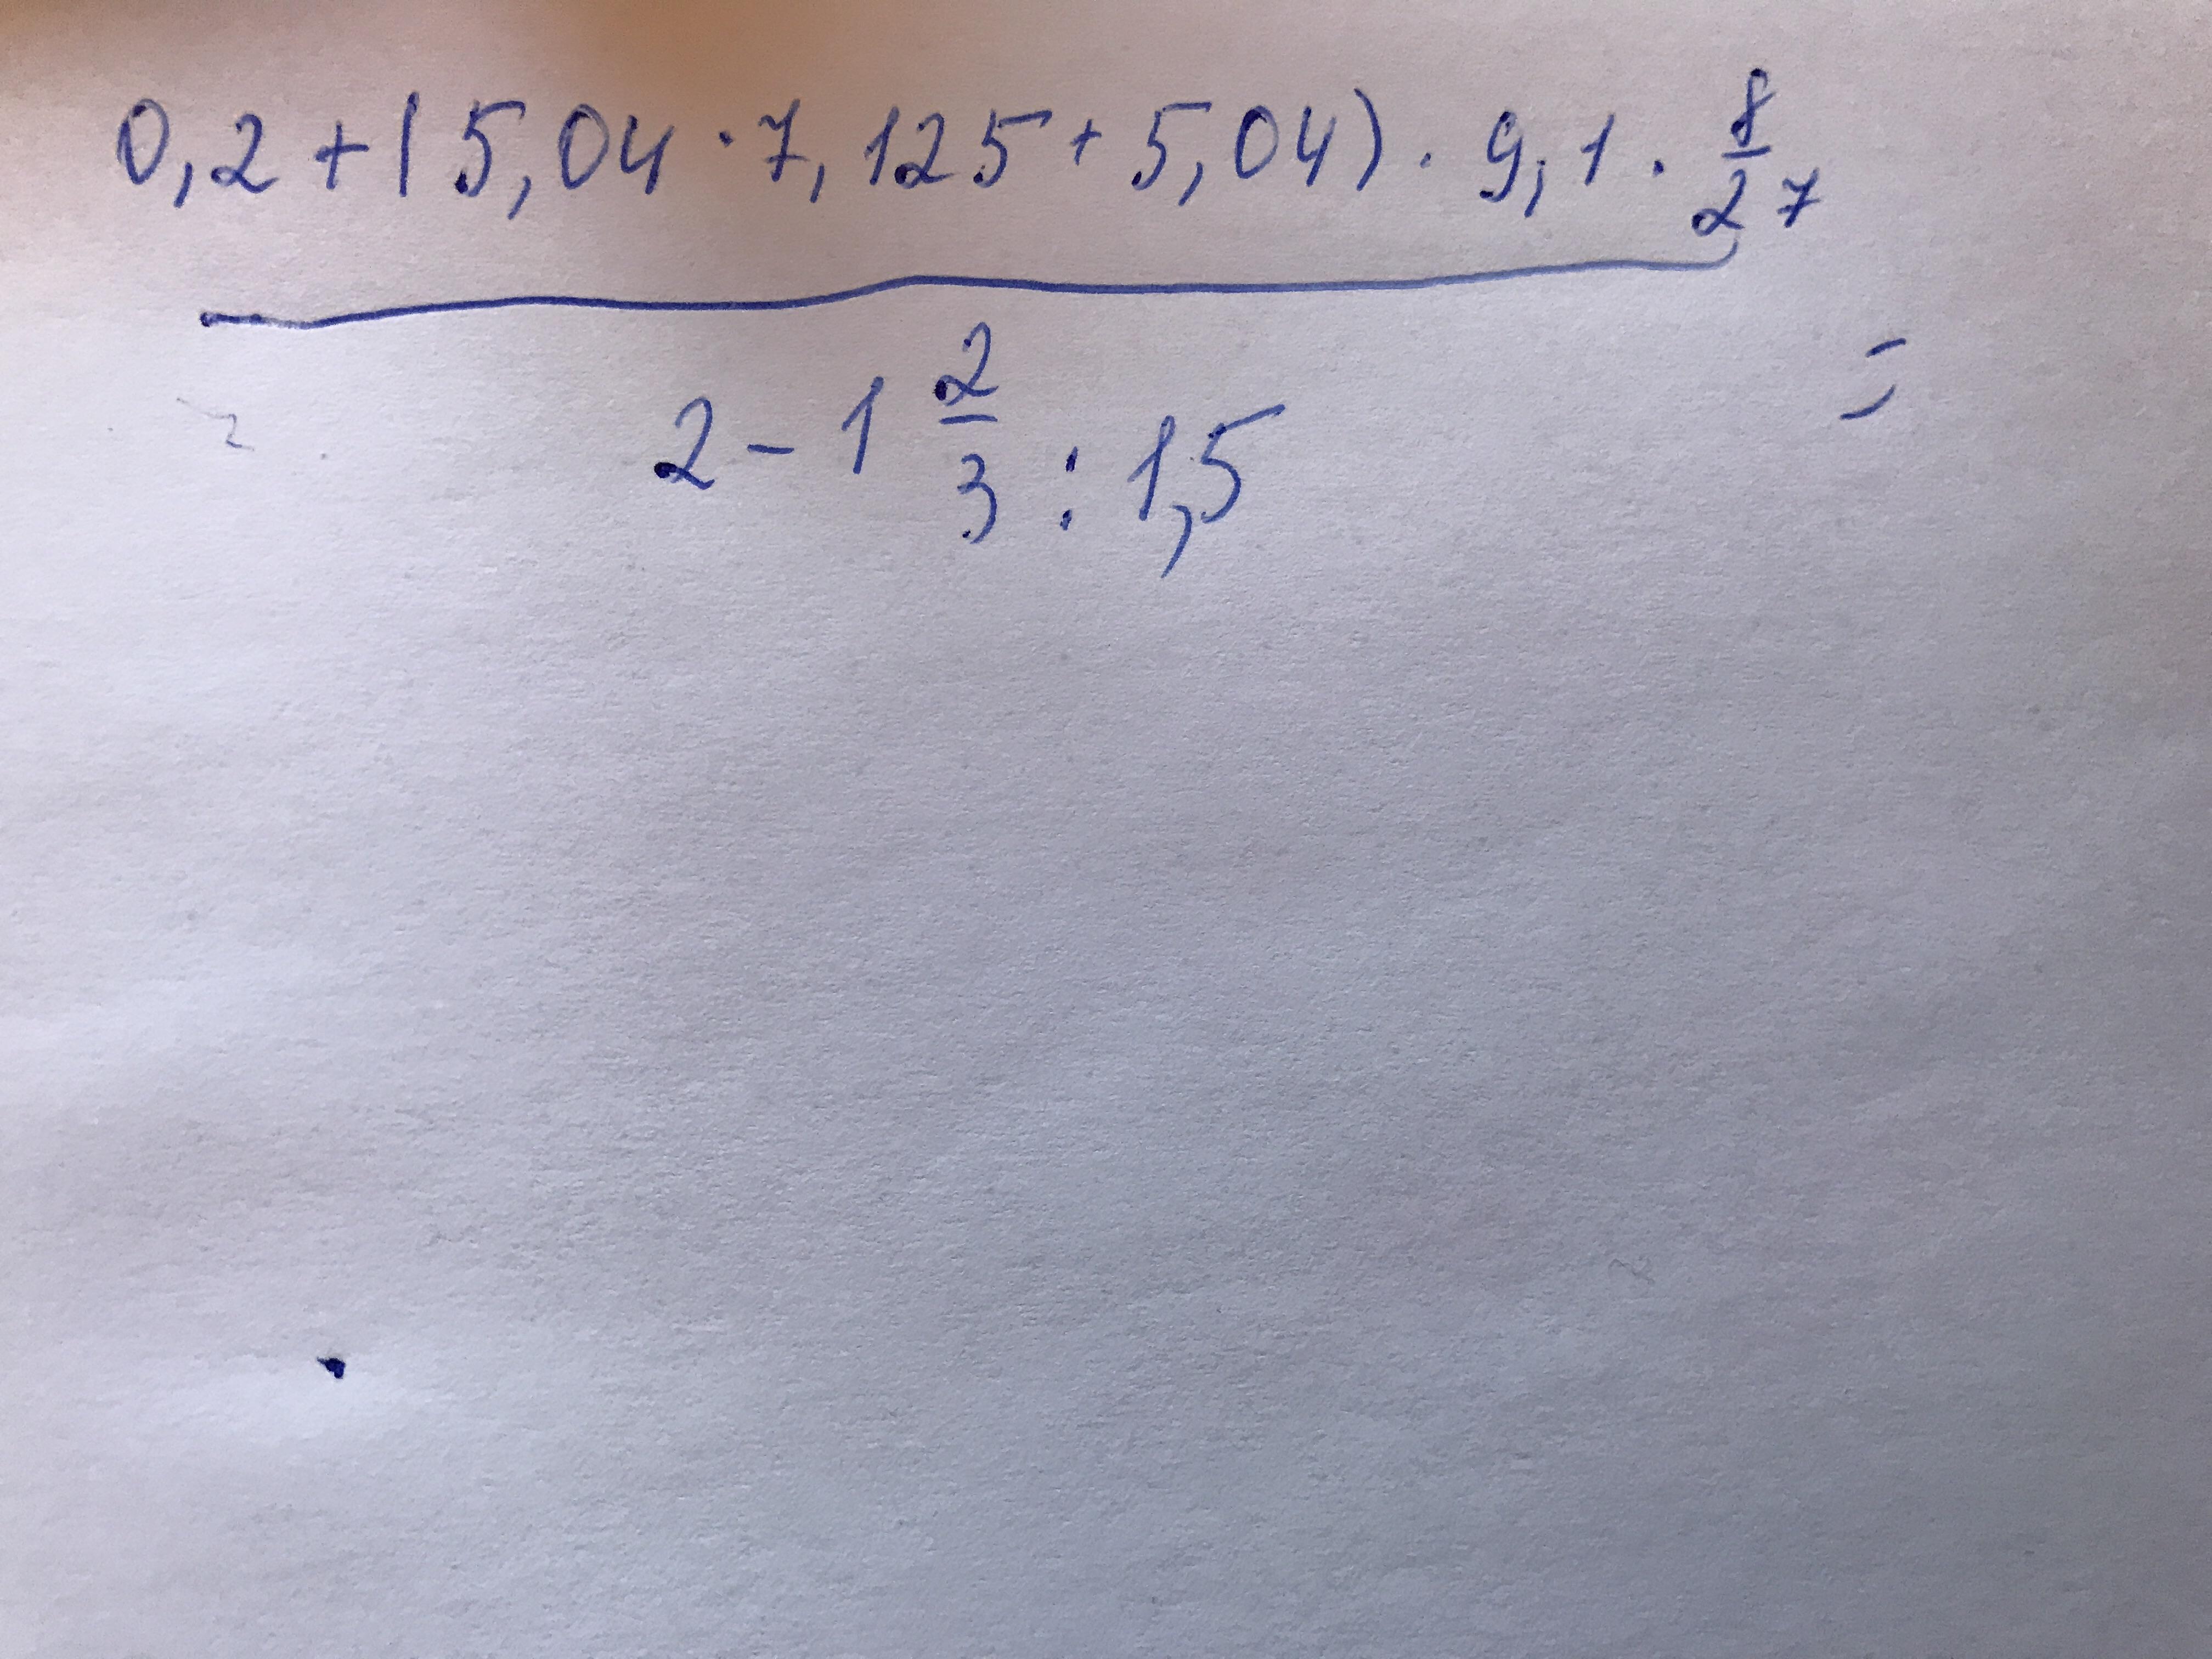 0,2+(5,04·7,125+5,04)·9,1·8/27
=
2-1 2/3:1,5